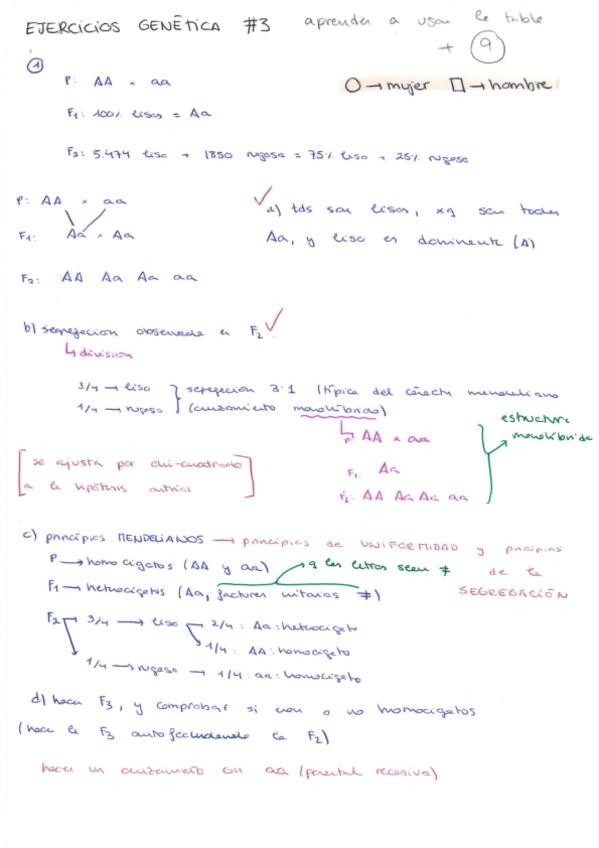 EJERCICIOS GENÉTICA #3
aprender a usar la tabla
+ 9
1
○ → mujer □ → hombre
P: AA × aa
F1: 100% lisos = Aa
F2: 5.474 liso + 1850 rugoso = 75% liso + 25% rugoso
P: AA × aa
F1: Aa × Aa
F2: AA Aa Aa aa
✓ a) tds son lisos, xq son todos
Aa, y liso es dominante (A)
b) segregacion observada en F2 ✓
↳ division
3/4 → liso } segregación 3:1 (típica del carácter mendeliano
1/4 → rugoso } (cruzamiento monohíbrido)
↳ P: AA × aa
F1: Aa
F2: AA Aa Aa aa
estructura
monohíbrida
[se ajusta por chi-cuadrado
a la hipótesis]
c) principios MENDELIANOS → principios de UNIFORMIDAD y principios
de la
SEGREGACIÓN
P → homocigotos (AA y aa) → q las letras sean ≠
F1 → heterocigotos (Aa, factores unitarios ≠)
F2 → 3/4 → liso → 2/4: Aa: heterocigoto
1/4: AA: homocigoto
1/4 → rugoso → 1/4: aa: homocigoto
d) hacer F3, y comprobar si son o no homocigotos
(hace la F3 autofecundando la F2)
hacer un cruzamiento con aa (parental recesivo)